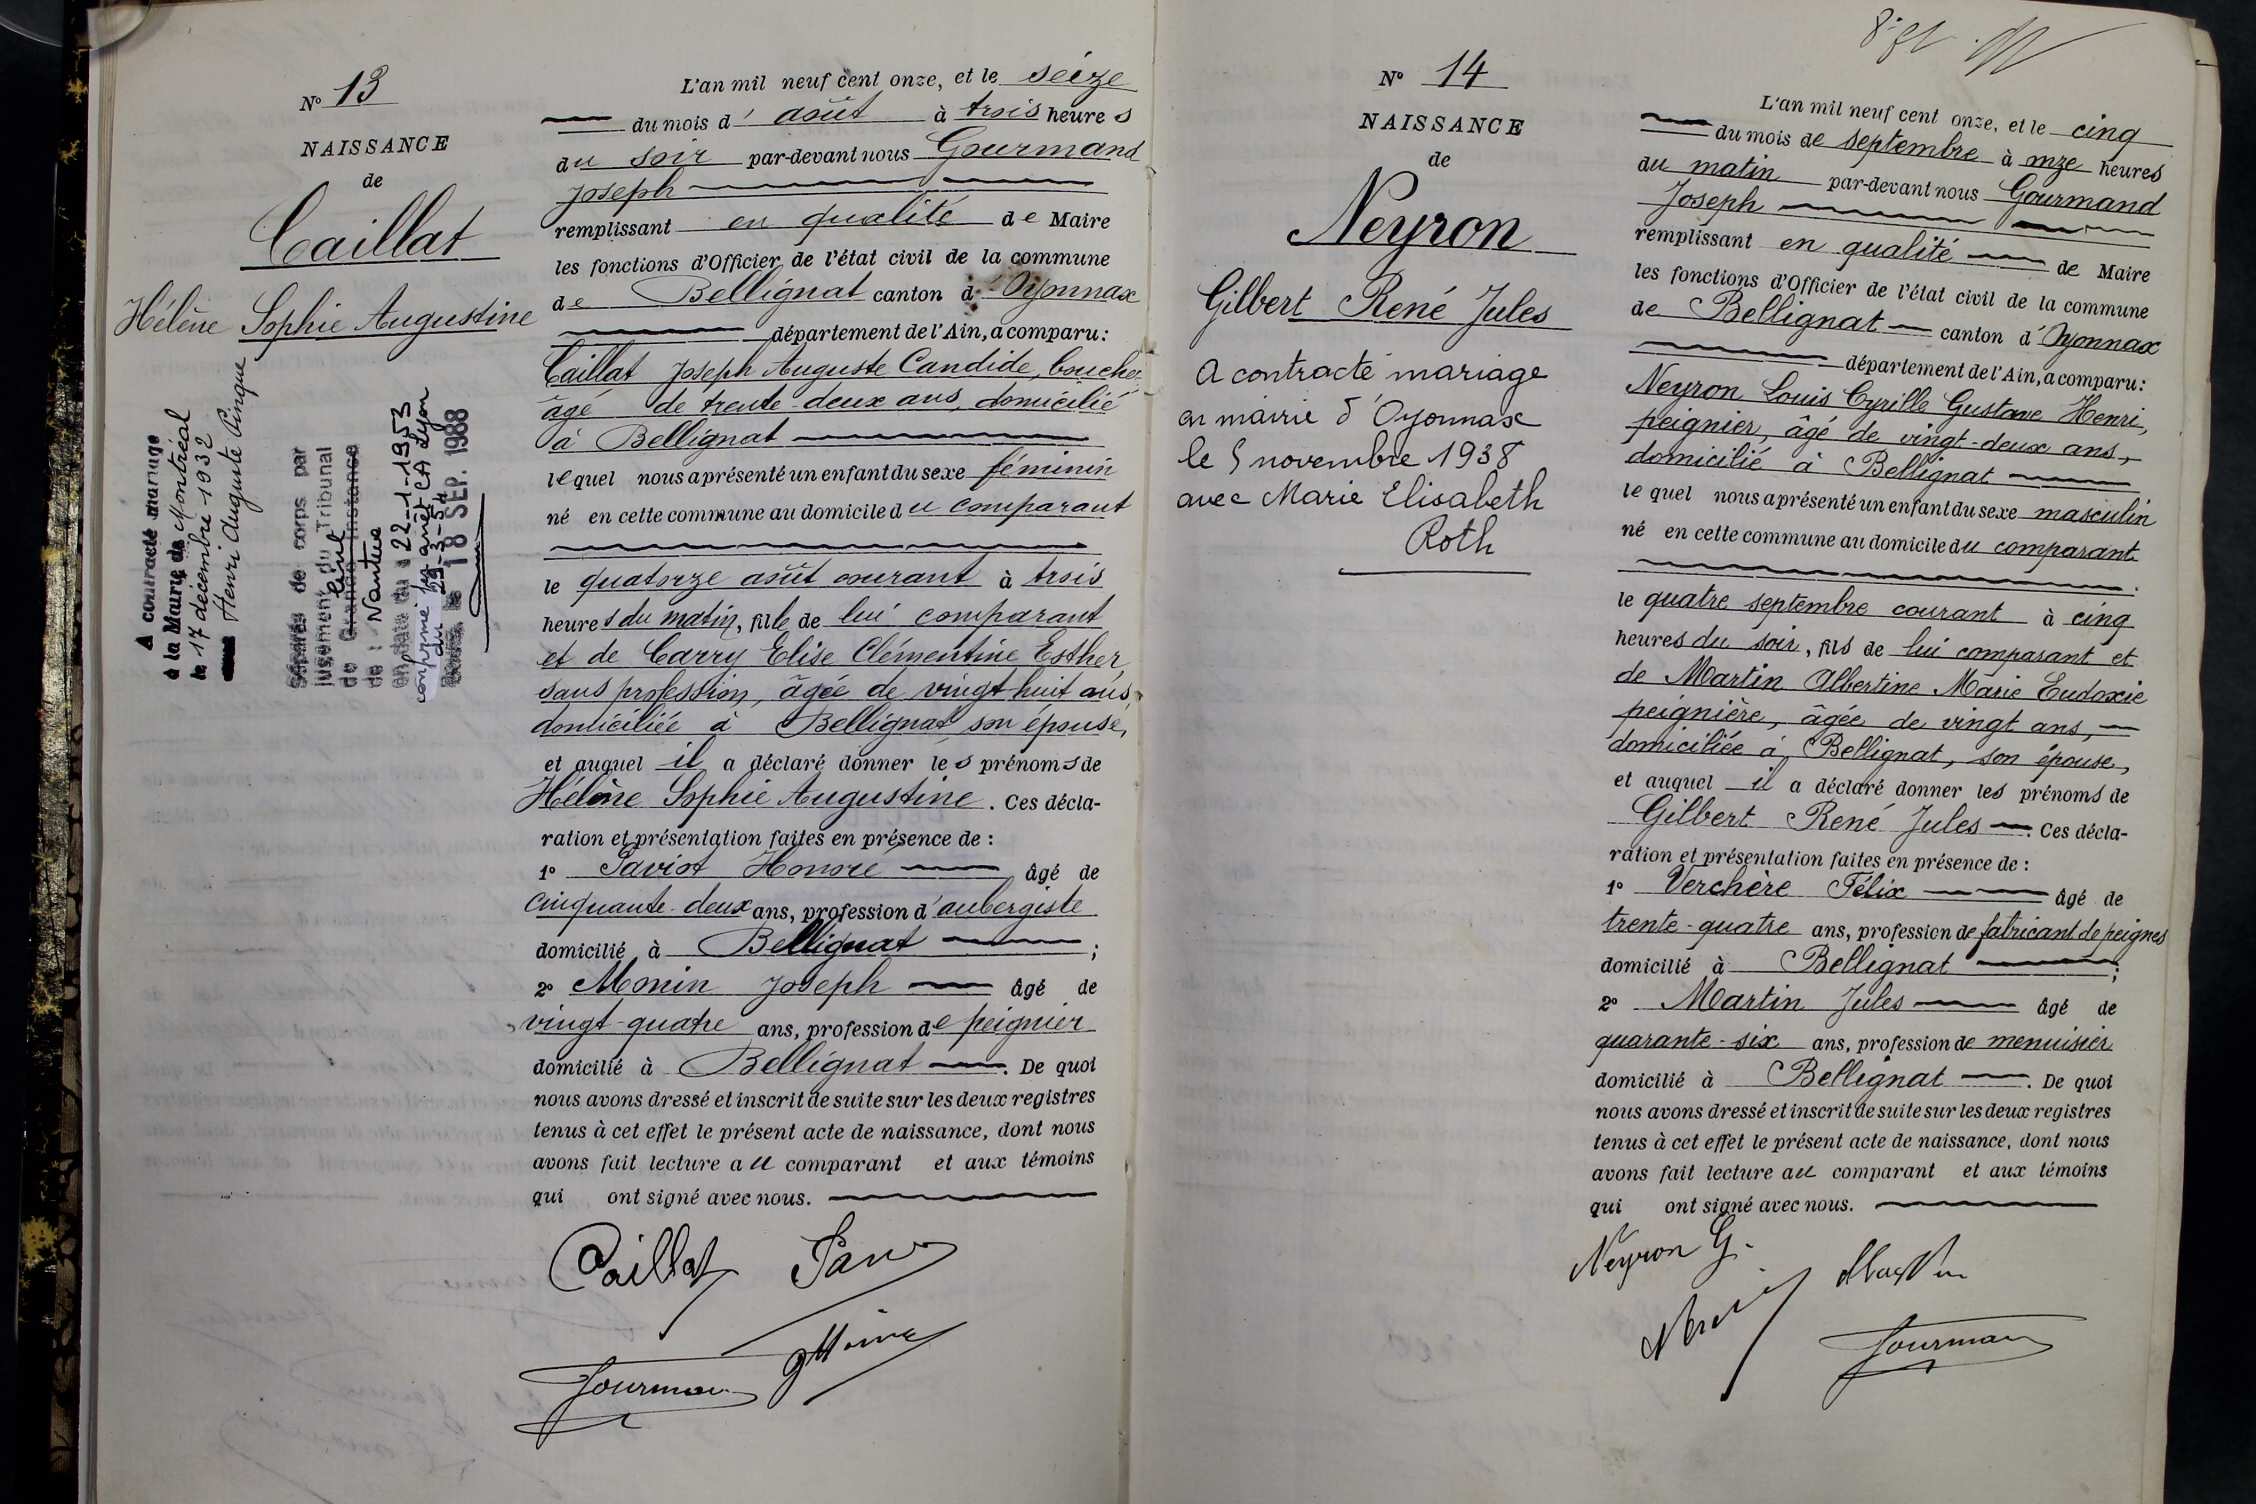 N° 13
NAISSANCE
de
Caillat
Hélène Sophie Augustine
A contracté mariage
à la Mairie de Montréal
le 17 décembre 1932
Henri Auguste Pingue
Séparés de corps par
jugement du Tribunal
civil
de Grande Instance
de : Nantua
en date du 22-1-1953
confirmé par arrêt CA Lyon
du 29-3-54
18 SEP. 1988
L'an mil neuf cent onze, et le seize
du mois d'août à trois heures
du soir par-devant nous Gourmand
Joseph
remplissant en qualité de Maire
les fonctions d'Officier de l'état civil de la commune
de Bellignat canton d'Oyonnax
département de l'Ain, a comparu :
Caillat Joseph Auguste Candide, boucher
âgé de trente-deux ans, domicilié
à Bellignat
lequel nous a présenté un enfant du sexe féminin
né en cette commune au domicile du comparant
le quatorze août courant à trois
heures du matin, fille de lui comparant
et de Carry Elise Clémentine Esther
sans profession, âgée de vingt huit ans,
domiciliée à Bellignat son épouse,
et auquel il a déclaré donner les prénoms de
Hélène Sophie Augustine. Ces décla-
ration et présentation faites en présence de :
1° Saviot Honoré âgé de
cinquante-deux ans, profession d'aubergiste
domicilié à Bellignat ;
2° Monin Joseph âgé de
vingt-quatre ans, profession de peignier
domicilié à Bellignat . De quoi
nous avons dressé et inscrit de suite sur les deux registres
tenus à cet effet le présent acte de naissance, dont nous
avons fait lecture au comparant et aux témoins
qui ont signé avec nous.
Caillat
N° 14
NAISSANCE
de
Neyron
Gilbert René Jules
A contracté mariage
en mairie d'Oyonnax
le 5 novembre 1938
avec Marie Elisabeth
Roth
L'an mil neuf cent onze, et le cinq
du mois de septembre à onze heures
du matin par-devant nous Gourmand
Joseph
remplissant en qualité de Maire
les fonctions d'Officier de l'état civil de la commune
de Bellignat canton d'Oyonnax
département de l'Ain, a comparu :
Neyron Louis Cyrille Gustave Henri,
peignier, âgé de vingt-deux ans,
domicilié à Bellignat
lequel nous a présenté un enfant du sexe masculin
né en cette commune au domicile du comparant
le quatre septembre courant à cinq
heures du soir, fils de lui comparant et
de Martin Albertine Marie Eudoxie
peignière, âgée de vingt ans,
domiciliée à Bellignat, son épouse,
et auquel il a déclaré donner les prénoms de
Gilbert René Jules . Ces décla-
ration et présentation faites en présence de :
1° Verchère Félix âgé de
trente-quatre ans, profession de fabricant de peignes
domicilié à Bellignat ;
2° Martin Jules âgé de
quarante-six ans, profession de menuisier
domicilié à Bellignat . De quoi
nous avons dressé et inscrit de suite sur les deux registres
tenus à cet effet le présent acte de naissance, dont nous
avons fait lecture au comparant et aux témoins
qui ont signé avec nous.
Neyron G.